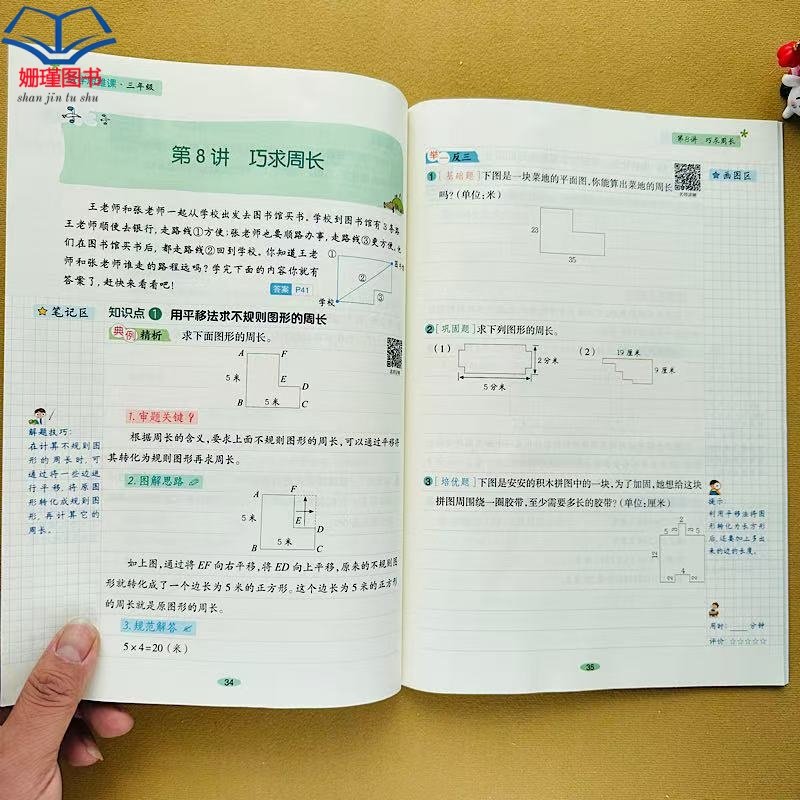 姗瑾图书
shan jin tu shu
维课·三年级
第8讲 巧求周长
王老师和张老师一起从学校出发去图书馆买书。学校到图书馆有3条路
王老师顺便去银行,走路线①方便;张老师也要顺路办事,走路线③更方便。他
们在图书馆买书后,都走路线②回到学校。你知道王老
师和张老师谁走的路程远吗?学完下面的内容你就有
答案了,赶快来看看吧!
答案 P41
①
②
③
学校
笔记区
知识点 1 用平移法求不规则图形的周长
典例精析 求下面图形的周长。
A F
5米 E D
B 5米 C
1.审题关键
根据周长的含义,要求上面不规则图形的周长,可以通过平移将
其转化为规则图形再求周长。
2.图解思路
A F
5米 E D
B 5米 C
如上图,通过将EF向右平移,将ED向上平移,原来的不规则图
形就转化成了一个边长为5米的正方形。这个边长为5米的正方形
的周长就是原图形的周长。
3.规范解答
5×4=20(米)
解题技巧:
在计算不规则图
形的周长时,可
通过将一些边进
行平移,将原图
形转化成规则图
形,再计算它的
周长。
34
第8讲 巧求周长
举一反三
画图区
1 [基础题]下图是一块菜地的平面图,你能算出菜地的周长
吗?(单位:米)
23
35
2 [巩固题]求下列图形的周长。
(1)
2分米
5分米
(2)
19厘米
9厘米
3 [培优题]下图是安安的积木拼图中的一块,为了加固,她想给这块
拼图周围绕一圈胶带,至少需要多长的胶带?(单位:厘米)
2
5 3 3 5
12
4
2 2
提示
利用平移法将图
形转化为长方形
后,还要加上多出
来的边的长度。
用时:____分钟
评价:☆☆☆☆☆
35